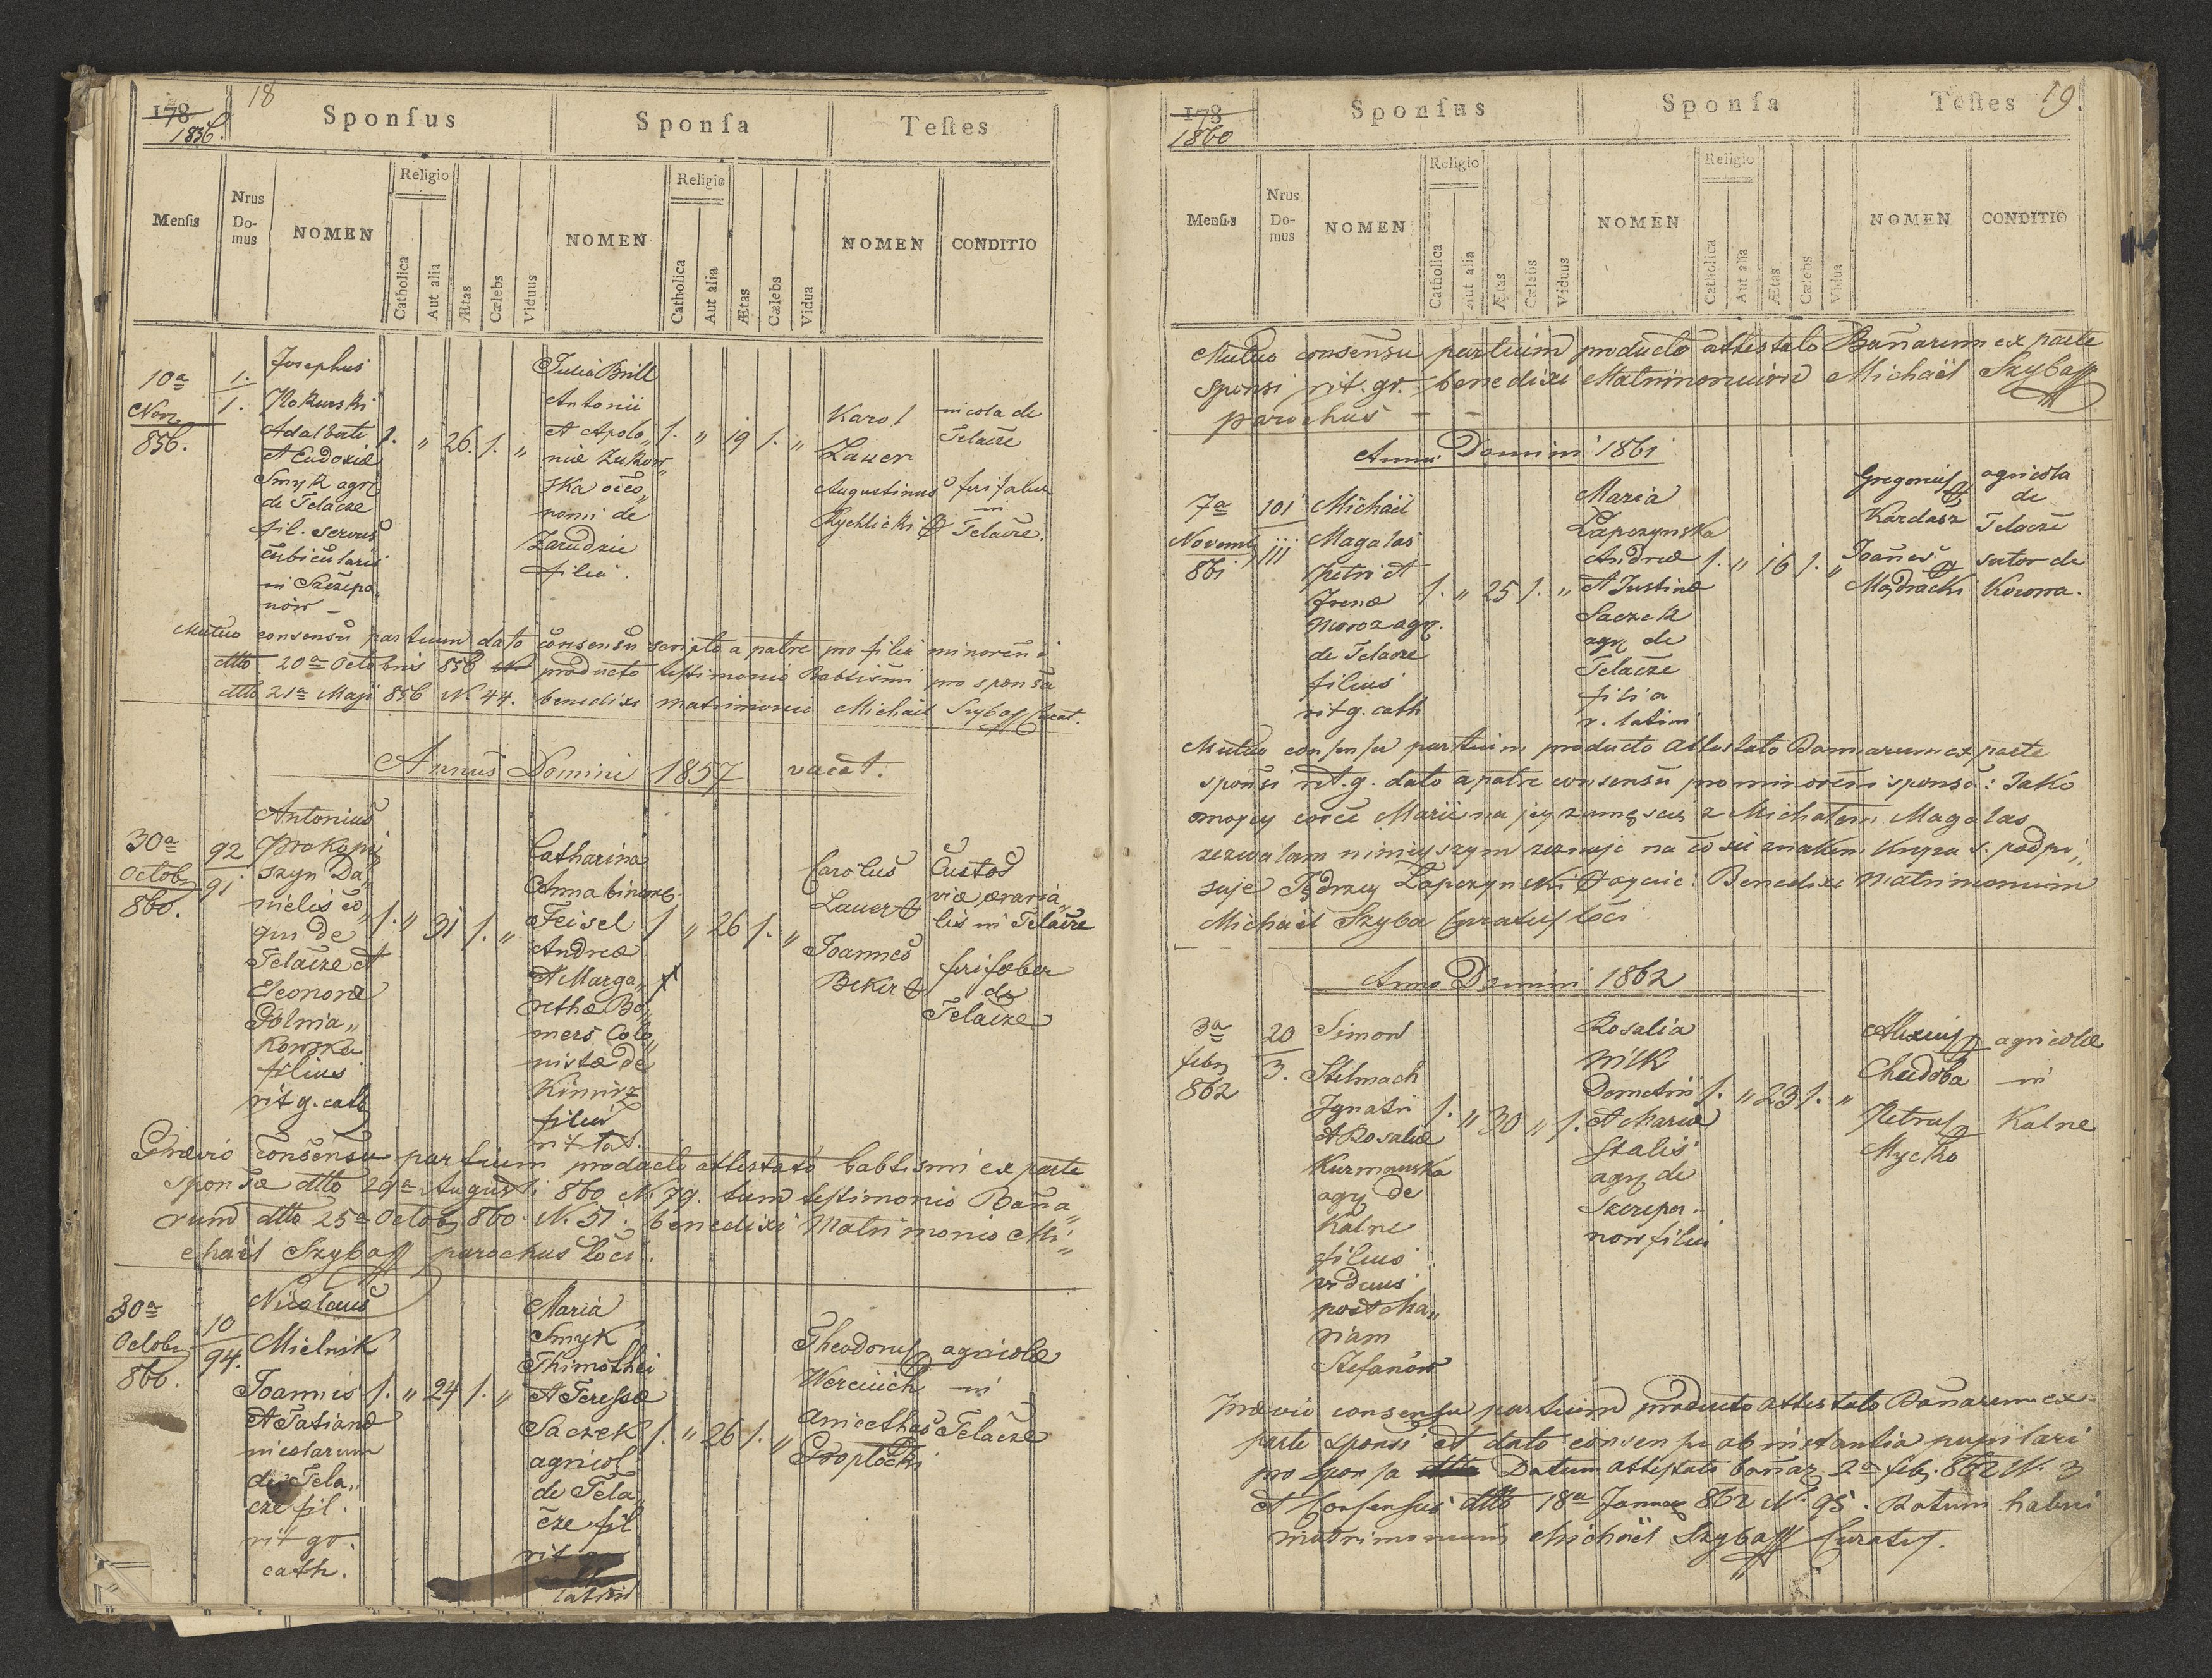 18
178
1856.
Sponſus
Sponſa
Teſtes
Menſis
Nrus Do-mus
NOMEN
Religio
Catholica
Aut alia
Ætas
Cælebs
Viduus
NOMEN
Religio
Catholica
Aut alia
Ætas
Cælebs
Vidua
NOMEN
CONDITIO
10a
Nov
856.
1.
1.
Josephus
Kokurski
Adalberti
et Eudoxiæ
Smyk agr
de Telacze
fil. servus
cubicularis
in Szczepa„
nów –
1. „ 26. 1. „
Julia Brill
Antonii
et Apolo„
niæ Zukow„
ska oeco„
nomi de
Zarudzie
filia.
1. „ 19 1. „
Karol
Lauer
Augustinus
Rychlicki
incola de
Telacze
ferifaber
in
Telacze.
Mutuo consensu partium dato consensu scripto a patre pro filia minoreni
dtto 20a Octobris 856 producto testimonio Babtismi pro sponsa
dtto 21a Maji 856 N. 44. benedixi matrimonio Michaël Szyba Curat.
Annus Domini 1857 vacat.
30a
Octobr
860.
92
91
Antonius
Prokopi
szyn Da„
nielis co„
qui de
Telacze et
Eleonoræ
Dolnia„
kowska
filius
rit g. cath
1. „ 31 1. „
Catharina
Anna binom
Feisel
Andreæ
et Marga„
rethæ Bo„
mers Colo„
nistæ de
filia
rit lat.
1 „ 26 1. „
Carolus
Lauer
Joannes
Beker
Custos
viæ æraria„
lis in Telacze
ferifaber
de
Telacze
Prævio consensu partium producto attestato babtismi ex parte
sponsæ dtto 29a Augusti 860 N. 79. tum testimonio Bana„
rum dtto 25a Octob 860. N. 51. benedixi Matrimonio Mi„
chaël Szyba parochus loci.
30a
Octobr
860.
10
94.
Nicolaus
Mielnik
Joannis
et Tatianæ
incolarum
de Tela„
cze fil.
rit gr.
cath.
1. „ 24 1. „
Maria
Smyk
Thimothei
et Teressæ
Saczek
agricol
de Tela„
cze fil
rit gr
cath
latini
1. „ 26 1. „
Theodorus
Werciuch
Anicethes
Proplocki
agricolæ
in
Telacze
19.
178
1860
Sponſus
Sponſa
Teſtes
Menſis
Nrus Do-mus
NOMEN
Religio
Catholica
Aut alia
Ætas
Cælebs
Viduus
NOMEN
Religio
Catholica
Aut alia
Ætas
Cælebs
Vidua
NOMEN
CONDITIO
Mutuo consensu partium producto attestato Banarum ex parte
sponsi rit. gr. benedixi Matrimonium Michaël Szyba
parochus – –
Anni Domini 1861
7a
Novemb
861
101
111
Michaël
Magalas
Petri et
Irenæ
Moroz agr.
de Telacze
filius
rit g. cath
1. „ 25 1. „
Maria
Łapczynska
Andreæ
et Justinæ
Saczek
agr de
Telacze
filia
r. latini
1. „ 16 1. „
Gregorius
Kardasz
Joannes
Mądracki
agricola
de
Telacze
sutor de
Korowa.
Mutuo consensu partium producto attestato Bannarum ex parte
sponsi rit. g. dato a patre consensu pro minoreni sponsa: Jako
mojey corce Marii na jey zamęscie z Michałem Magalas
zezwalam niniejszym zeznaje na co sie znakiem krzyza s. podpi„
suje Jędrzey Łapczynski oyciec: Benedixi Matrimonium
Michaël Szyba Curatus loci
Anno Domini 1862
3a
febr
862
20
3.
Simon
Stelmach
Ignatii
et Rosaliæ
Kurmanska
agr de
Kalne
filius
viduus
post Ma„
riam
Stefanów
1. „ 30 „ 1.
Rosalia
Wilk
Demetrii
et Mariæ
Stalis
agr de
Szczepa„
now filia
1. „ 23 1. „
Alexius
Chudoba
Petrus
Mycko
agricolæ
in
Kalne
Prævio consensu partium producto attestato Banarum ex
parte sponsi et dato consensu ab instantia pupilari
pro sponsa Datum attestato banar. 2a feb. 862 N. 3
et Consensus dtto 18a Januar 862 N. 95. Ratum habui
matrimonium Michaël Szyba Curatus.